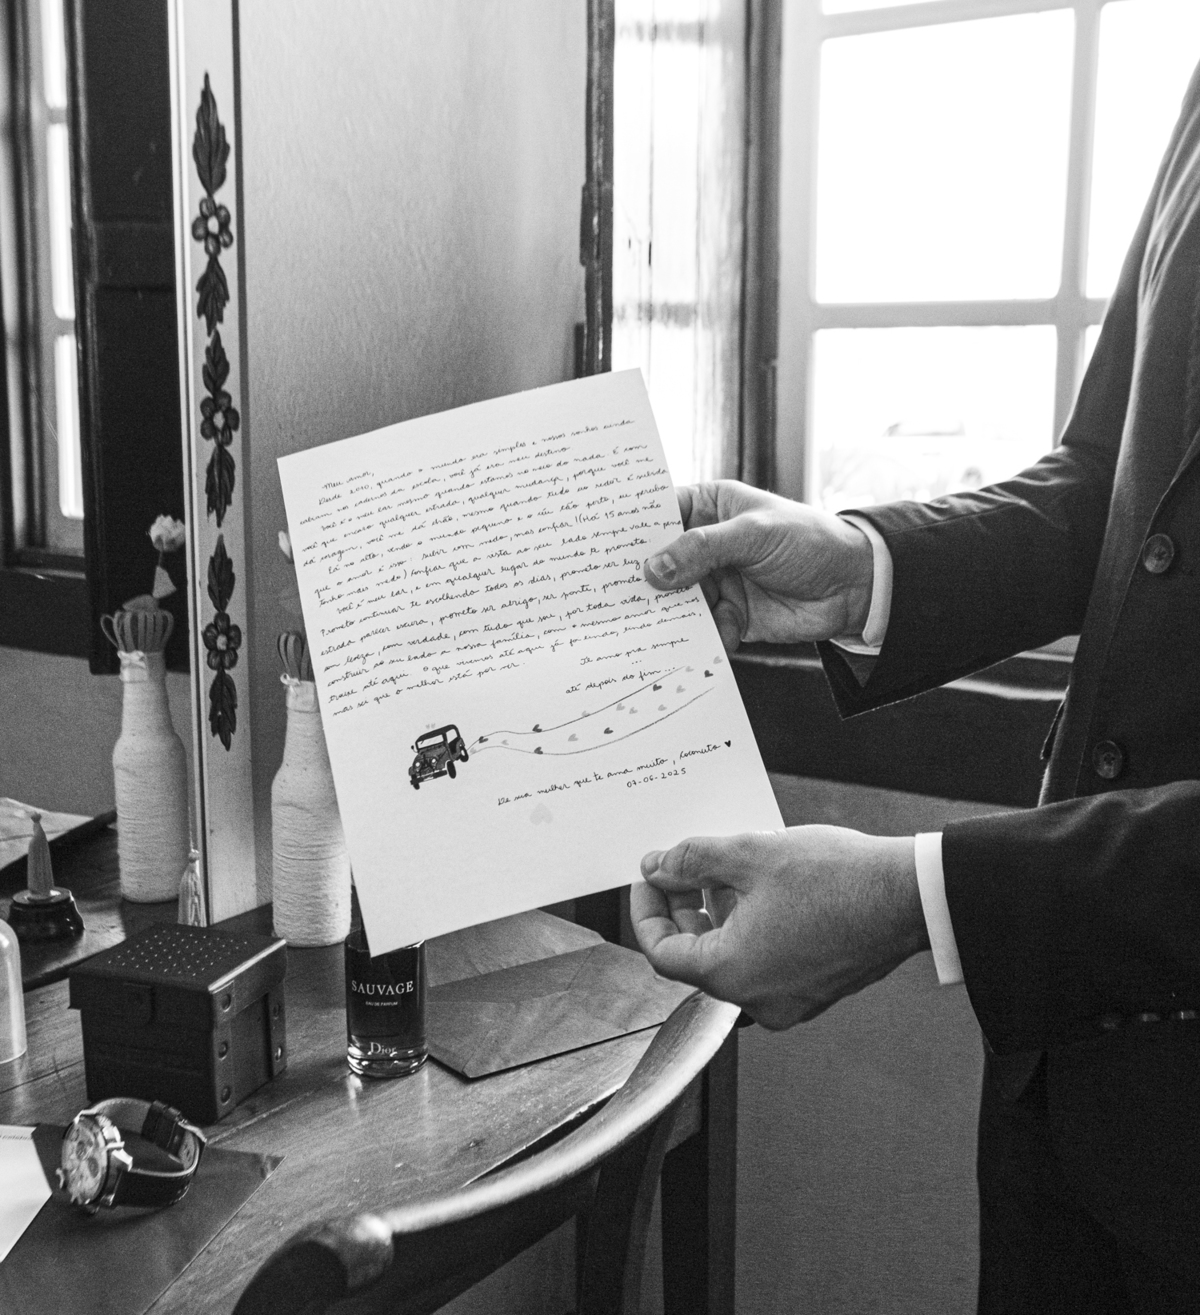 Meu amor,
Desde 2010, quando o mundo era simples e nossos sonhos ainda
cabiam nos cadernos da escola, você já era meu destino.
Você é o meu lar mesmo quando estamos no meio do nada. É com
você que encaro qualquer estrada, qualquer mudança, porque você me
dá coragem, você me dá chão, mesmo quando tudo ao redor é subida
Lá no alto, vendo o mundo pequeno e o céu tão perto, eu percebo
que o amor é isso: subir com medo, mas confiar!! (Há 15 anos não
tenho mais medo) Confiar que a vista ao seu lado sempre vale a pena
Você é meu lar, e em qualquer lugar do mundo te prometo.
Prometo continuar te escolhendo todos os dias, prometo ser luz
estrada parecer escura, prometo ser abrigo, ser ponte, prometo
com verdade, com tudo que sou, por toda vida, prometo
construir ao seu lado a nossa família, com o mesmo amor que nos
trouxe até aqui. O que vivemos até aqui já foi lindo, lindo demais,
mas sei que o melhor está por vir.
Te amo pra sempre
...
até depois do fim...
De sua mulher que te ama muito, ♥
07-06-2025
SAUVAGE
EAU DE PARFUM
Dior